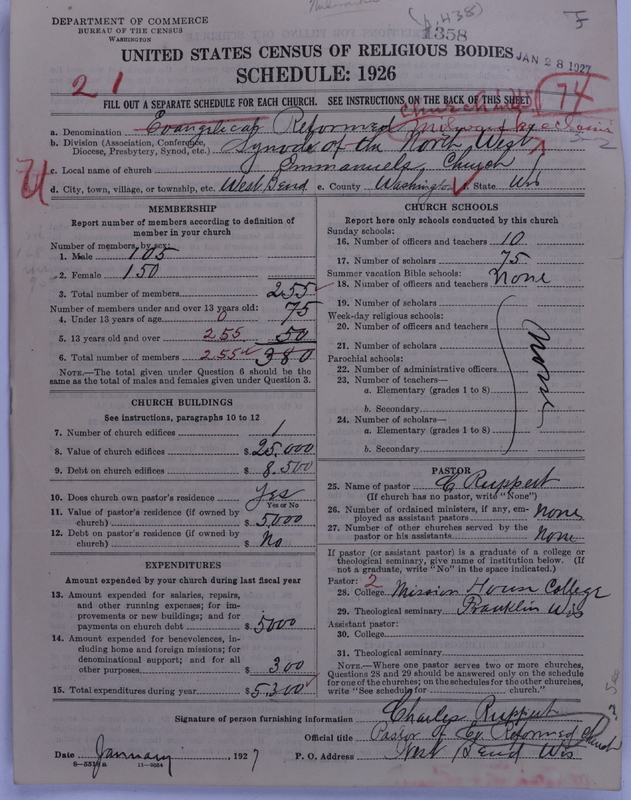 DEPARTMENT OF COMMERCE
BUREAU OF THE CENSUS
WASHINGTON
1358
JAN 28 1927
UNITED STATES CENSUS OF RELIGIOUS BODIES
SCHEDULE: 1926
2 1
FILL OUT A SEPARATE SCHEDULE FOR EACH CHURCH. SEE INSTRUCTIONS ON THE BACK OF THIS SHEET
74
a. Denomination Evangelical Reformed
b. Division (Association, Conference, Diocese, Presbytery, Synod, etc.) Synode of the North West
c. Local name of church Emmanuels Church
d. City, town, village, or township, etc. West Bend e. County Washington f. State Wis
MEMBERSHIP
Report number of members according to definition of member in your church
Number of members, by sex:
1. Male 105
2. Female 150
3. Total number of members 255
Number of members under and over 13 years old:
4. Under 13 years of age 0 75
5. 13 years old and over 255 50
6. Total number of members 255 380
NOTE.—The total given under Question 6 should be the same as the total of males and females given under Question 3.
CHURCH BUILDINGS
See instructions, paragraphs 10 to 12
7. Number of church edifices 1
8. Value of church edifices $ 25,000
9. Debt on church edifices $ 8,500
10. Does church own pastor's residence Yes
Yes or No
11. Value of pastor's residence (if owned by church) $ 5,000
12. Debt on pastor's residence (if owned by church) $ No
EXPENDITURES
Amount expended by your church during last fiscal year
13. Amount expended for salaries, repairs, and other running expenses; for improvements or new buildings; and for payments on church debt $ 5000
14. Amount expended for benevolences, including home and foreign missions; for denominational support; and for all other purposes $ 300
15. Total expenditures during year $ 5,300
CHURCH SCHOOLS
Report here only schools conducted by this church
Sunday schools:
16. Number of officers and teachers 10
17. Number of scholars 75
Summer vacation Bible schools:
18. Number of officers and teachers None
19. Number of scholars
Week-day religious schools:
20. Number of officers and teachers
21. Number of scholars
Parochial schools:
22. Number of administrative officers
23. Number of teachers—
a. Elementary (grades 1 to 8)
b. Secondary
24. Number of scholars—
a. Elementary (grades 1 to 8)
b. Secondary
None
PASTOR
25. Name of pastor C Ruppert
(If church has no pastor, write "None")
26. Number of ordained ministers, if any, employed as assistant pastors None
27. Number of other churches served by the pastor or his assistants None
If pastor (or assistant pastor) is a graduate of a college or theological seminary, give name of institution below. (If not a graduate, write "No" in the space indicated.)
Pastor: 2
28. College Mission House College
29. Theological seminary Franklin Wis
Assistant pastor:
30. College
31. Theological seminary
NOTE.—Where one pastor serves two or more churches, Questions 28 and 29 should be answered only on the schedule for one of the churches; on the schedules for the other churches, write "See schedule for church."
Signature of person furnishing information Charles Ruppert
Official title Pastor of Ev. Reformed Church
Date January, 1927 P. O. Address West Bend Wis